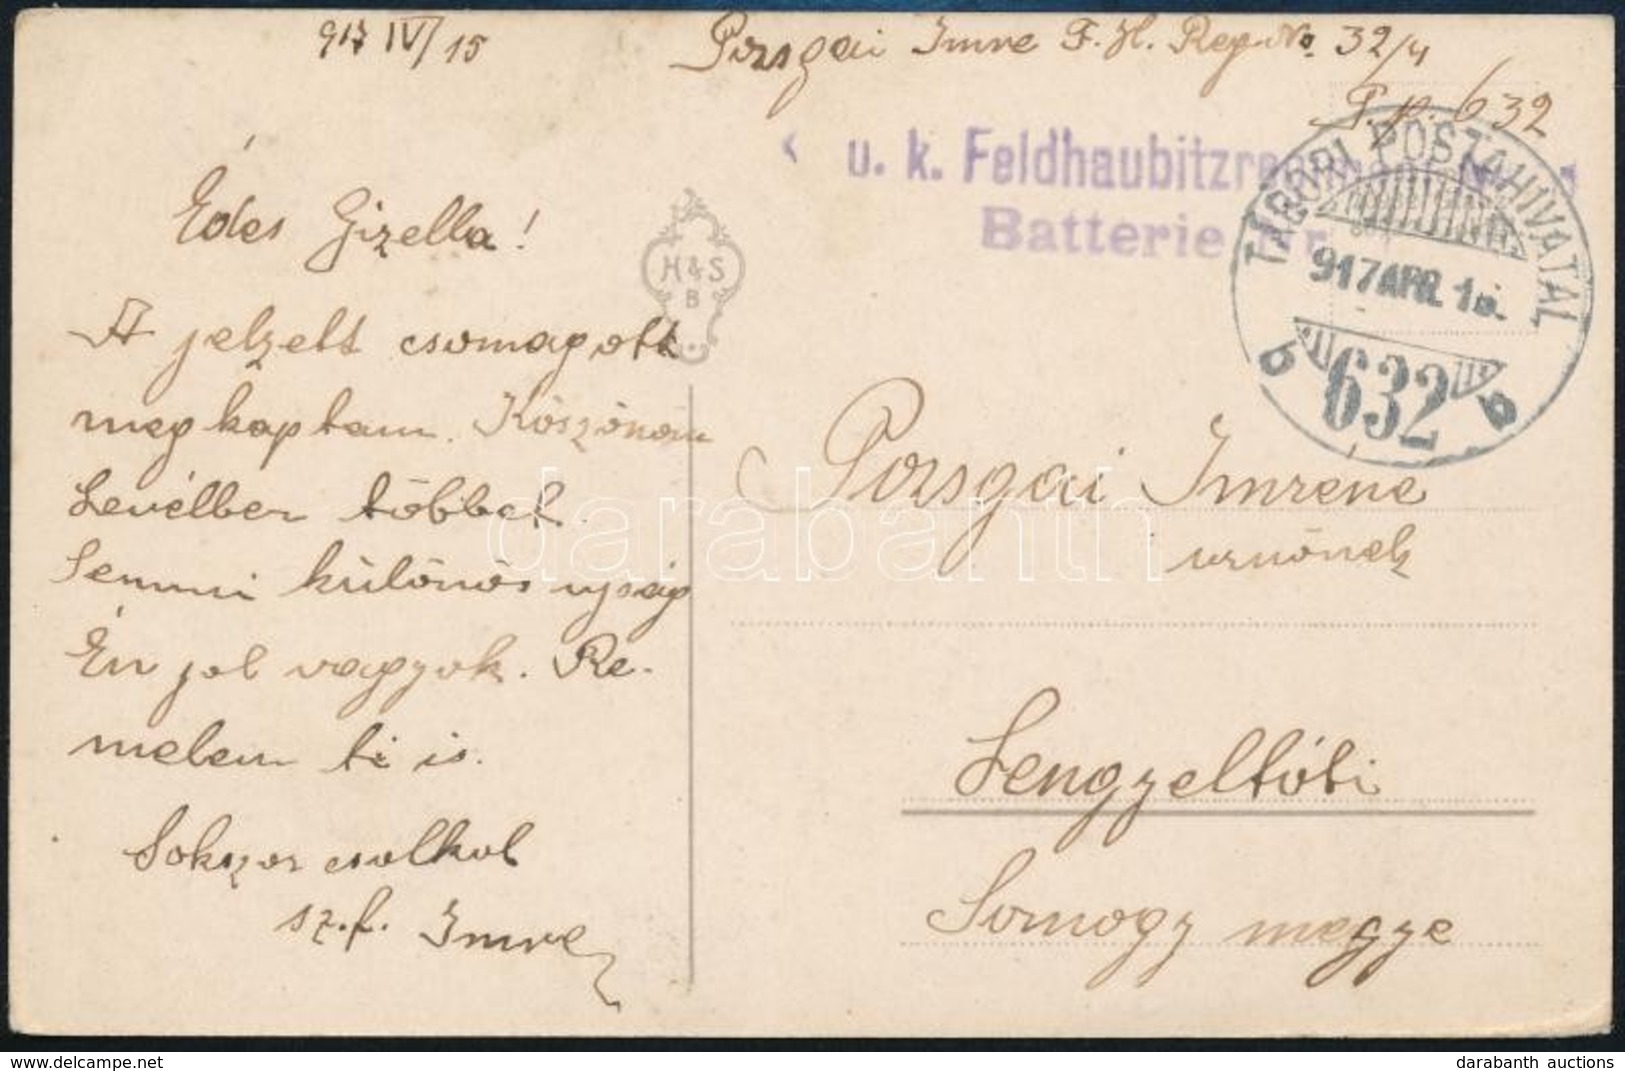 917 IV/15
Pozsgai Imre F. H. Reg. No. 32/4
T. p. 632
u. k. Feldhaubitzregiment
Batterie Nr
TÁBORI POSTAHIVATAL
917 APR. 1
632
b b
H & S
B
Édes Gizella!
A jelzett csomagott
megkaptam. Köszönöm
Levélben többet.
Semmi különös ujság
Én jol vagyok. Re-
melem ti is.
Sokszor csolkol
sz. f. Imre
Pozsgai Imréné
urnőnek
Lengyeltóti
Somogy megye
darabanth
darabanth auctions